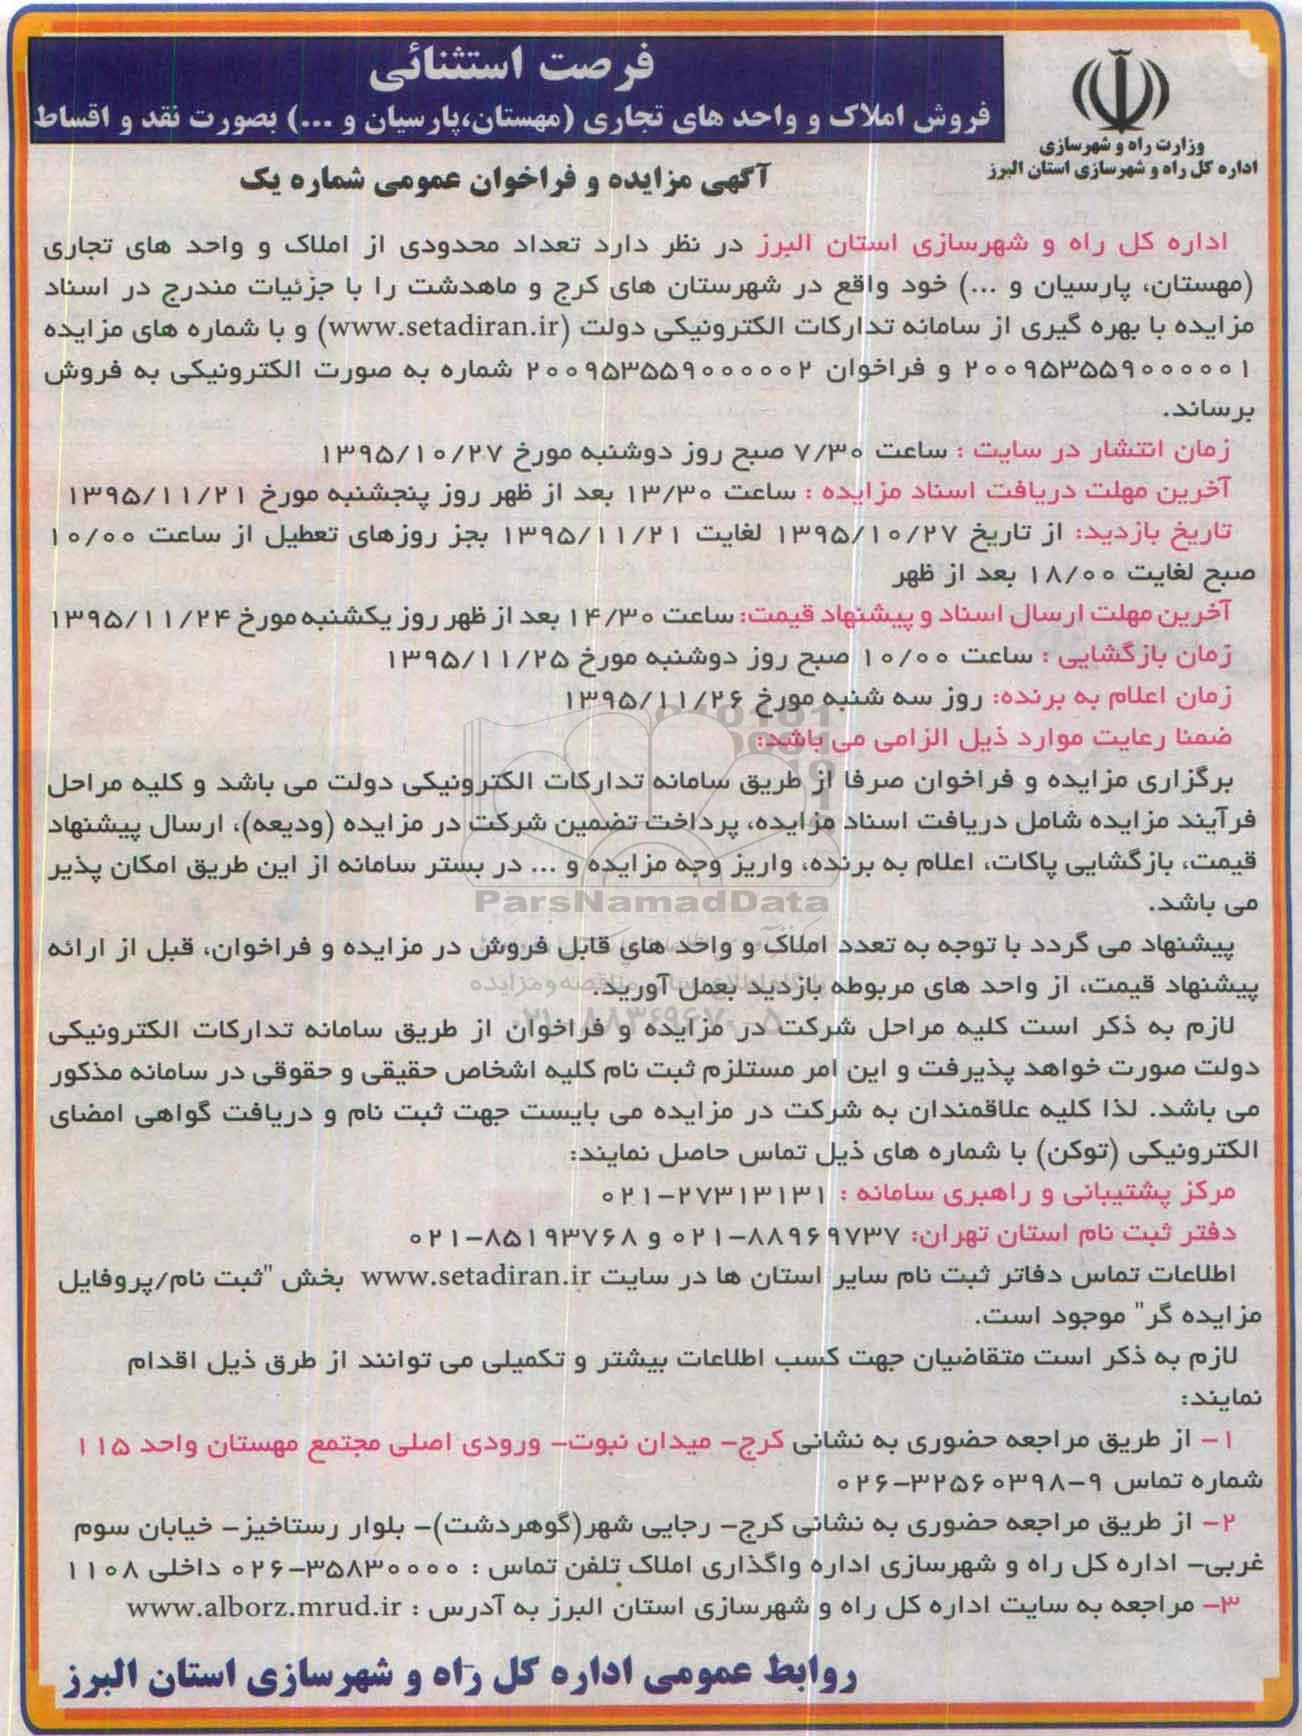 وزارت راه و شهرسازی
اداره کل راه و شهرسازی استان البرز
فرصت استثنائی
فروش املاک و واحد های تجاری (مهستان،پارسیان و ...) بصورت نقد و اقساط
آگهی مزایده و فراخوان عمومی شماره یک
اداره کل راه و شهرسازی استان البرز در نظر دارد تعداد محدودی از املاک و واحد های تجاری
(مهستان، پارسیان و ...) خود واقع در شهرستان های کرج و ماهدشت را با جزئیات مندرج در اسناد
مزایده با بهره گیری از سامانه تدارکات الکترونیکی دولت (www.setadiran.ir) و با شماره های مزایده
۲۰۰۹۵۳۵۵۹۰۰۰۰۰۱ و فراخوان ۲۰۰۹۵۳۵۵۹۰۰۰۰۰۲ شماره به صورت الکترونیکی به فروش
برساند.
زمان انتشار در سایت : ساعت ۷/۳۰ صبح روز دوشنبه مورخ ۱۳۹۵/۱۰/۲۷
آخرین مهلت دریافت اسناد مزایده : ساعت ۱۳/۳۰ بعد از ظهر روز پنجشنبه مورخ ۱۳۹۵/۱۱/۲۱
تاریخ بازدید: از تاریخ ۱۳۹۵/۱۰/۲۷ لغایت ۱۳۹۵/۱۱/۲۱ بجز روزهای تعطیل از ساعت ۱۰/۰۰
صبح لغایت ۱۸/۰۰ بعد از ظهر
آخرین مهلت ارسال اسناد و پیشنهاد قیمت: ساعت ۱۴/۳۰ بعد از ظهر روز یکشنبه مورخ ۱۳۹۵/۱۱/۲۴
زمان بازگشایی : ساعت ۱۰/۰۰ صبح روز دوشنبه مورخ ۱۳۹۵/۱۱/۲۵
زمان اعلام به برنده: روز سه شنبه مورخ ۱۳۹۵/۱۱/۲۶
ضمنا رعایت موارد ذیل الزامی می باشد:
برگزاری مزایده و فراخوان صرفا از طریق سامانه تدارکات الکترونیکی دولت می باشد و کلیه مراحل
فرآیند مزایده شامل دریافت اسناد مزایده، پرداخت تضمین شرکت در مزایده (ودیعه)، ارسال پیشنهاد
قیمت، بازگشایی پاکات، اعلام به برنده، واریز وجه مزایده و ... در بستر سامانه از این طریق امکان پذیر
می باشد.
ParsNamadData
پیشنهاد می گردد با توجه به تعدد املاک و واحد های قابل فروش در مزایده و فراخوان، قبل از ارائه
پیشنهاد قیمت، از واحد های مربوطه بازدید بعمل آورید.
لازم به ذکر است کلیه مراحل شرکت در مزایده و فراخوان از طریق سامانه تدارکات الکترونیکی
دولت صورت خواهد پذیرفت و این امر مستلزم ثبت نام کلیه اشخاص حقیقی و حقوقی در سامانه مذکور
می باشد. لذا کلیه علاقمندان به شرکت در مزایده می بایست جهت ثبت نام و دریافت گواهی امضای
الکترونیکی (توکن) با شماره های ذیل تماس حاصل نمایند:
مرکز پشتیبانی و راهبری سامانه : ۲۷۳۱۳۱۳۱-۰۲۱
دفتر ثبت نام استان تهران: ۸۸۹۶۹۷۳۷-۰۲۱ و ۸۵۱۹۳۷۶۸-۰۲۱
اطلاعات تماس دفاتر ثبت نام سایر استان ها در سایت www.setadiran.ir بخش "ثبت نام/پروفایل
مزایده گر" موجود است.
لازم به ذکر است متقاضیان جهت کسب اطلاعات بیشتر و تکمیلی می توانند از طرق ذیل اقدام
نمایند:
۱- از طریق مراجعه حضوری به نشانی کرج- میدان نبوت- ورودی اصلی مجتمع مهستان واحد ۱۱۵
شماره تماس ۹-۳۲۵۶۰۳۹۸-۰۲۶
۲- از طریق مراجعه حضوری به نشانی کرج- رجایی شهر(گوهردشت)- بلوار رستاخیز- خیابان سوم
غربی- اداره کل راه و شهرسازی اداره واگذاری املاک تلفن تماس : ۳۵۸۳۰۰۰۰-۰۲۶ داخلی ۱۱۰۸
۳- مراجعه به سایت اداره کل راه و شهرسازی استان البرز به آدرس : www.alborz.mrud.ir
روابط عمومی اداره کل راه و شهرسازی استان البرز